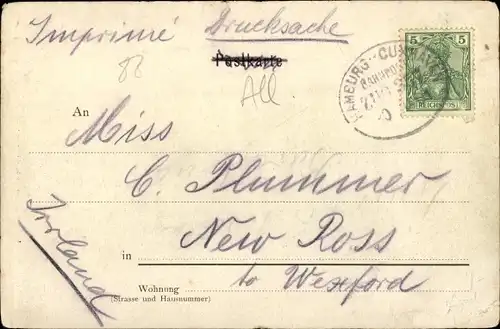 Imprimé Drucksache
Postkarte
88
All
5 5
REICHSPOST
HAMBURG-CUXHAVEN
BAHNPOST
An
Miss
C. Plummer
New Ross
in
to Wexford
Irland
Wohnung
(Strasse und Hausnummer)